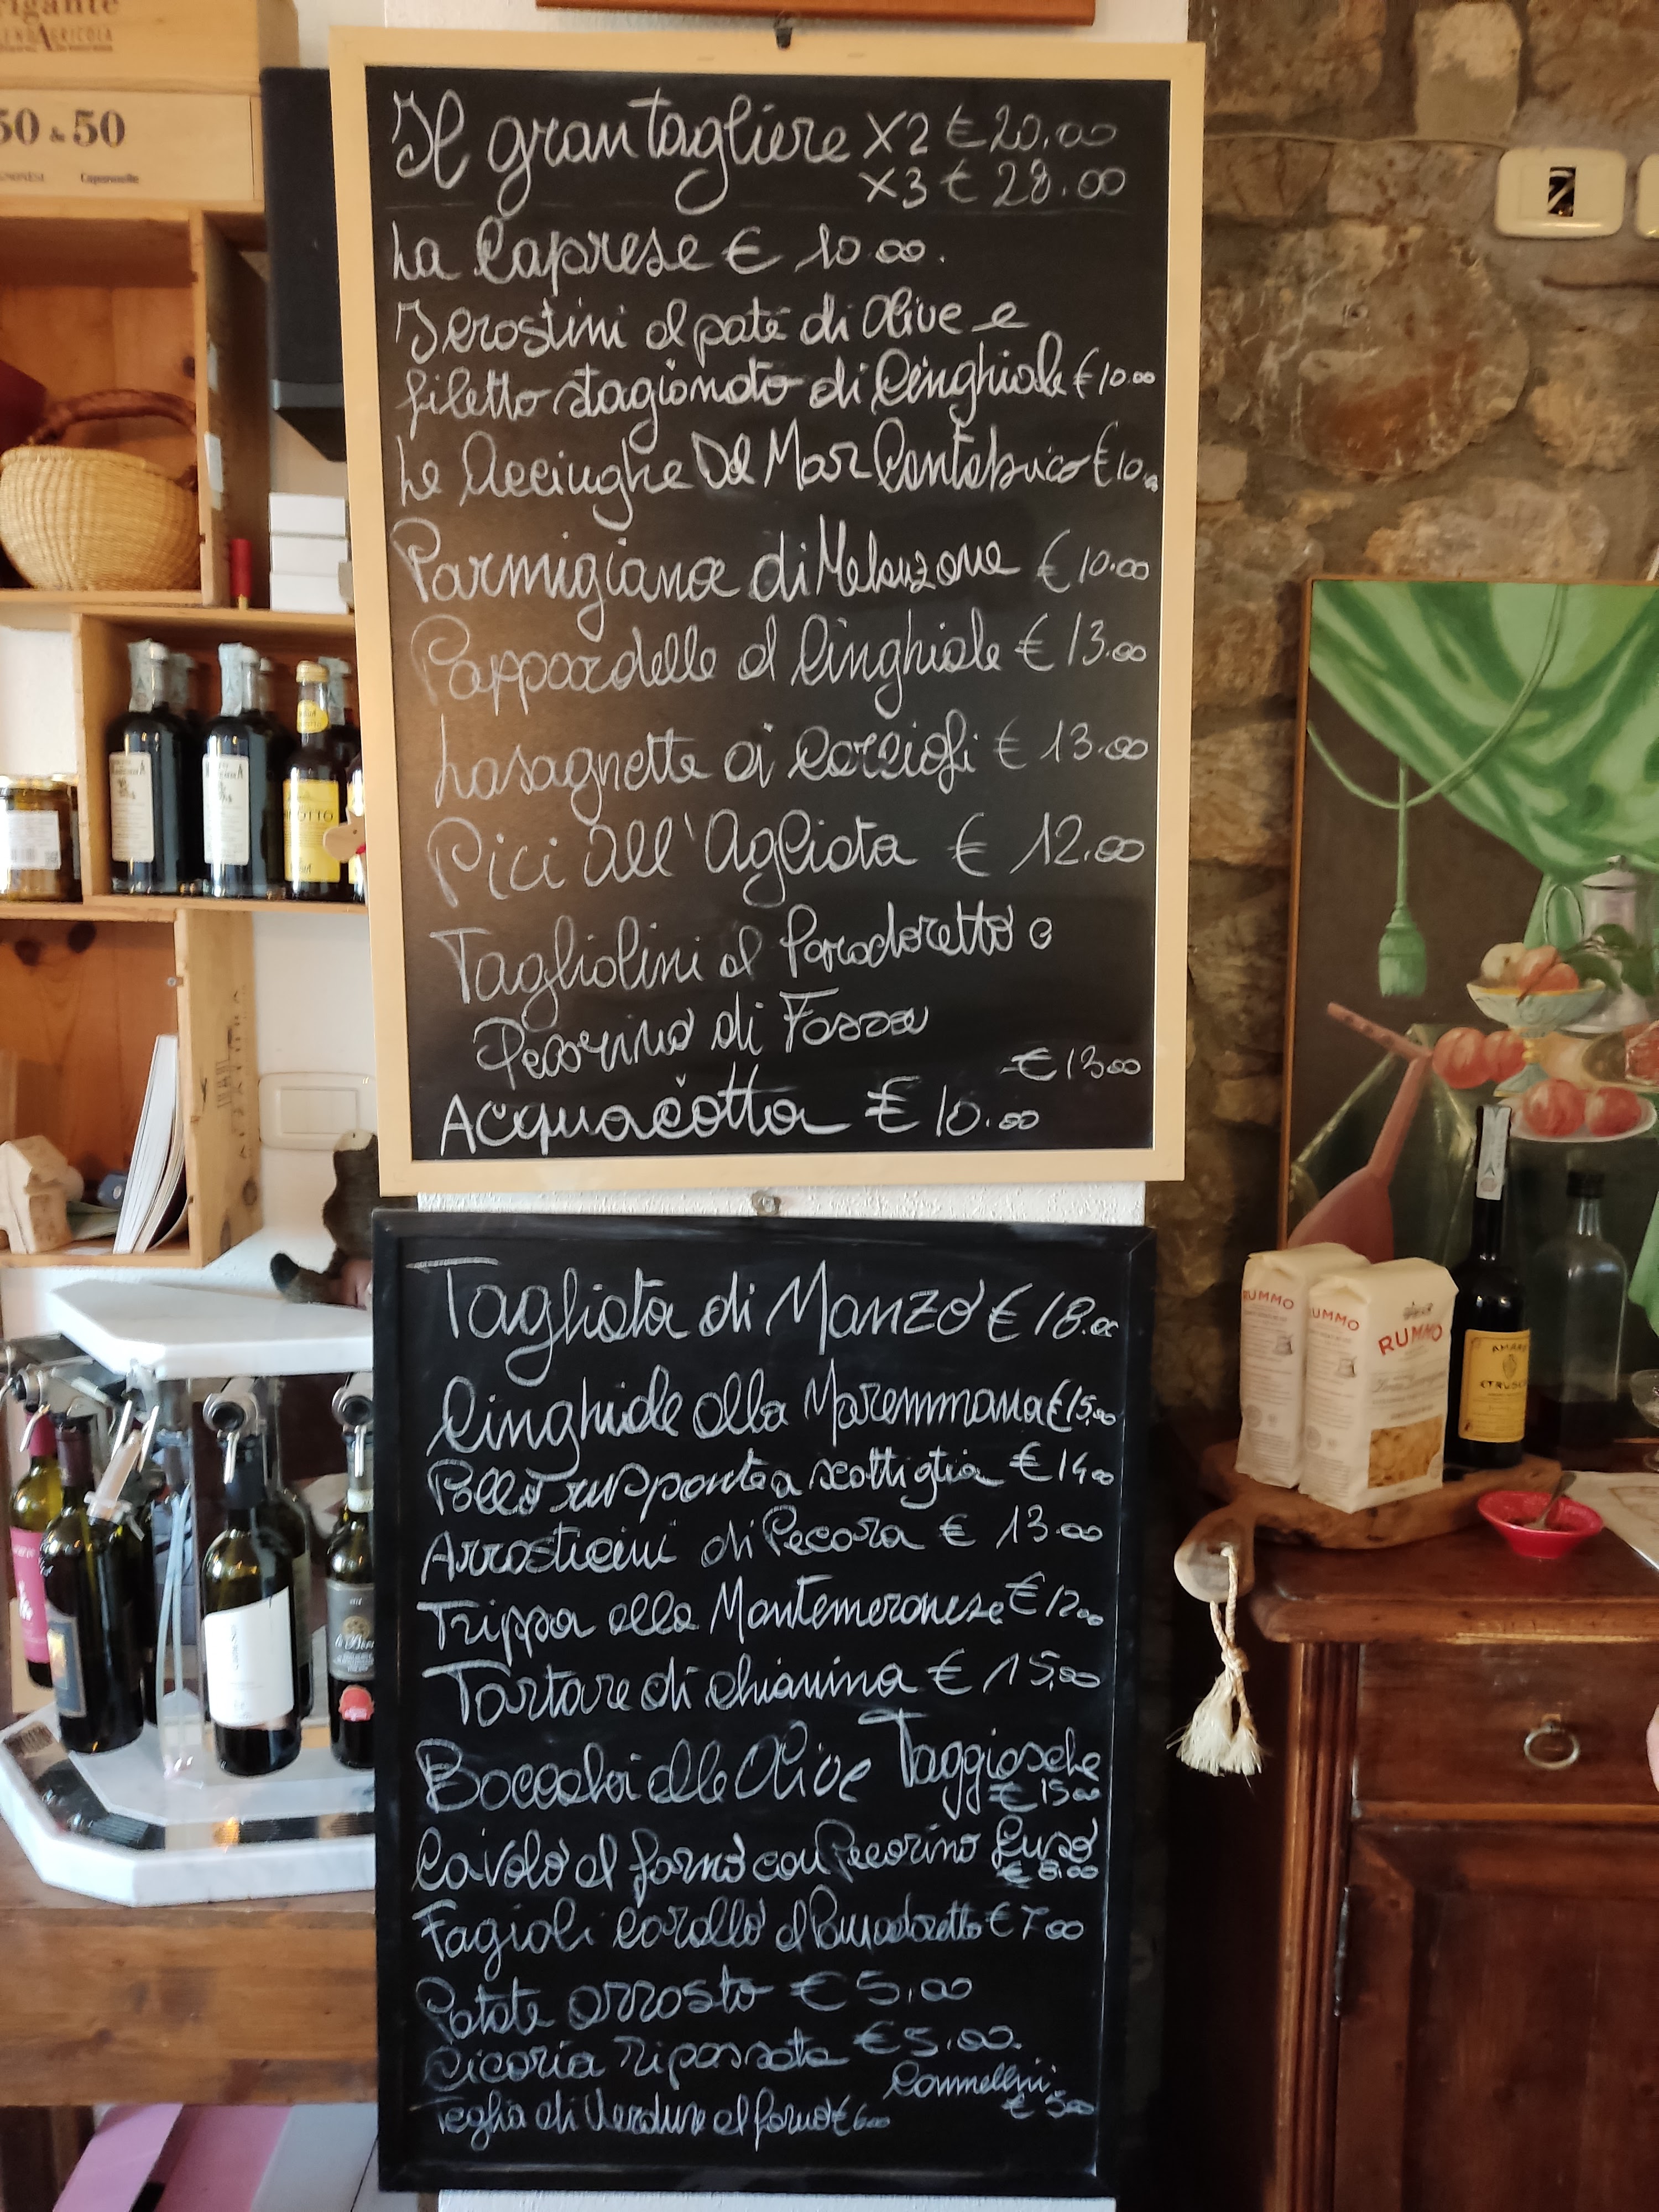 rigante
50 & 50
Il gran tagliere x2 € 20.00
x3 € 28.00
La Caprese € 10.00.
I Crostini al patè di Olive e
filetto stagionato di Cinghiale € 10.00
Le Acciughe Del Mar Cantabrico € 10.00
Parmigiana di Melanzane € 10.00
Pappardelle al Cinghiale € 13.00
Lasagnette ai Carciofi € 13.00
Pici all'Agliata € 12.00
Tagliolini al Pomodoretto e
Pecorino di Fossa
€ 13.00
Acquacotta € 10.00
Tagliata di Manzo € 18.00
Cinghiale alla Maremmana € 15.00
Pollo ruspante a scottiglia € 14.00
Arrosticini di Pecora € 13.00
Trippa alla Montemeranese € 12.00
Tartare di chianina € 15.00
Bocconi alle Olive Taggiasche
€ 15.00
Cavolo al forno con Pecorino fuso
€ 8.00
Fagioli Corallo al Pomodoretto € 7.00
Patate arrosto € 5.00
Cicoria ripassata € 5.00.
Cannellini
€ 5.00
Teglia di Verdure al forno € 6.00
RUMMO
RUMMO
RUMMO